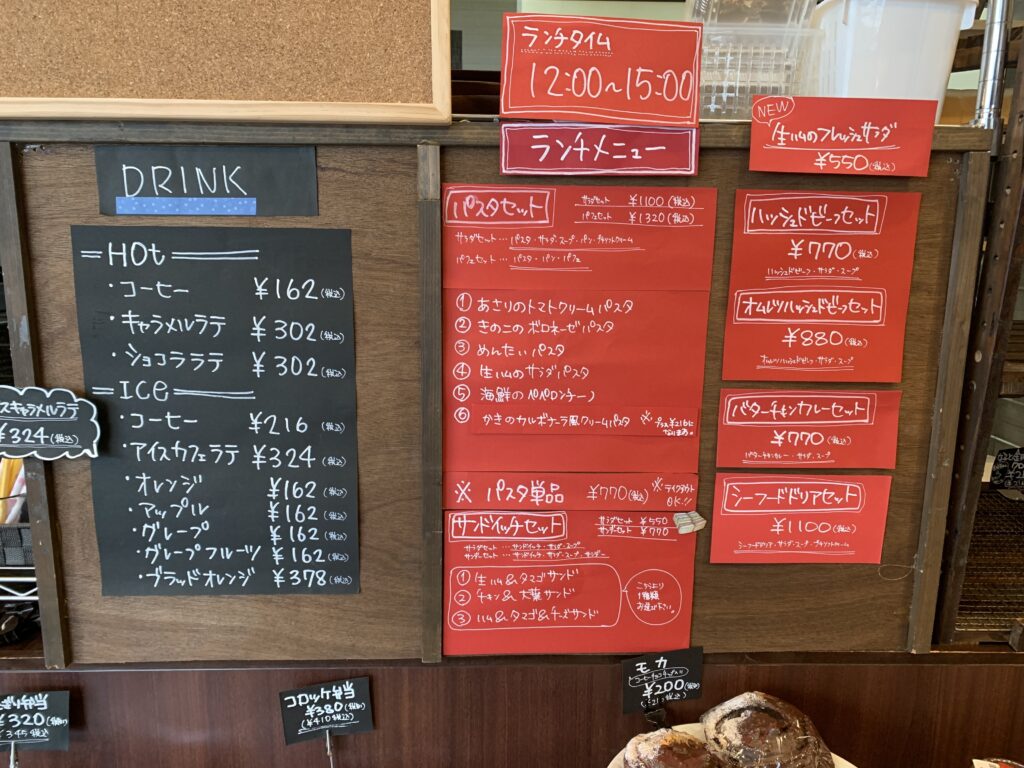 DRINK
Hot
・コーヒー ¥162(税込)
・キャラメルラテ ¥302(税込)
・ショコラララテ ¥302(税込)
ICe
・コーヒー ¥216(税込)
・アイスカフェラテ ¥324(税込)
・オレンジ ¥162(税込)
・アップル ¥162(税込)
・グレープ ¥162(税込)
・グレープフルーツ ¥162(税込)
・ブラッドオレンジ ¥378(税込)
スキャラメルラテ
¥324(税込)
ランチタイム
12:00〜15:00
ランチメニュー
パスタセット
サラダセット ¥1100(税込)
パフェセット ¥1320(税込)
サラダセット…パスタ・サラダ・スープ・パン・プチソフトクリーム
パフェセット…パスタ・パン・パフェ
① あさりのトマトクリームパスタ
② きのこのボロネーゼパスタ
③ めんたいパスタ
④ 生ハムのサラダパスタ
⑤ 海鮮のペペロンチーノ
⑥ かきのカルボナーラ風クリームパスタ
※プラス¥216に
なります。
※ パスタ単品 ¥770(税込)
※テイクアウト
OK!!
サンドイッチセット
サラダセット ¥550
サンデーセット ¥770
サラダセット…サンドイッチ・サラダ・スープ
サンデーセット…サンドイッチ・サラダ・スープ・サンデー
① 生ハム&タマゴサンド
② チキン&大葉サンド
③ ハム&タマゴ&チーズサンド
こちらより
1種類
お選び下さい。
NEW
生ハムのフレッシュサラダ
¥550(税込)
ハッシュドビーフセット
¥770(税込)
ハッシュドビーフ・サラダ・スープ
オムレツハッシュドビーフセット
¥880(税込)
オムレツハッシュドビーフ・サラダ・スープ
バターチキンカレーセット
¥770(税込)
バターチキンカレー・サラダ・スープ
シーフードドリアセット
¥1100(税込)
シーフードドリア・サラダ・スープ・プチソフトクリーム
ぎり弁当
¥320(税別)
¥345税込
コロッケ弁当
¥380(税別)
(¥410税込)
モカ
¥200(税別)